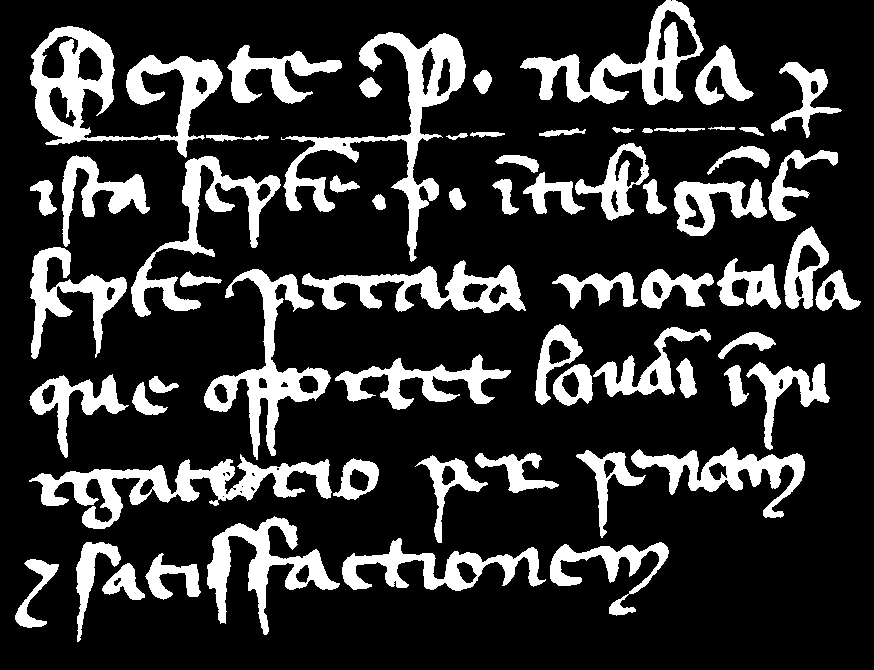 Septe .P. nella ꝑ
ista septē .p. ītelligūt᷑
septē peccata mortalia
que opportet lauāi īpu
rgatorio per penam
⁊ satisfactionem